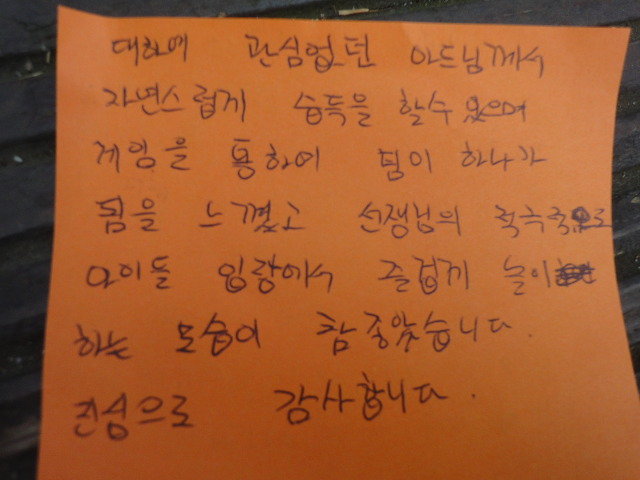 대하에 관심없던 아드님께서
자연스럽게 습득을 할수 있으며
게임을 통하여 팀이 하나가
됨을 느꼈고 선생님의 적극적으로
아이들 입장에서 즐겁게 놀이
하는 모습이 참 좋았습니다.
진심으로 감사합니다.